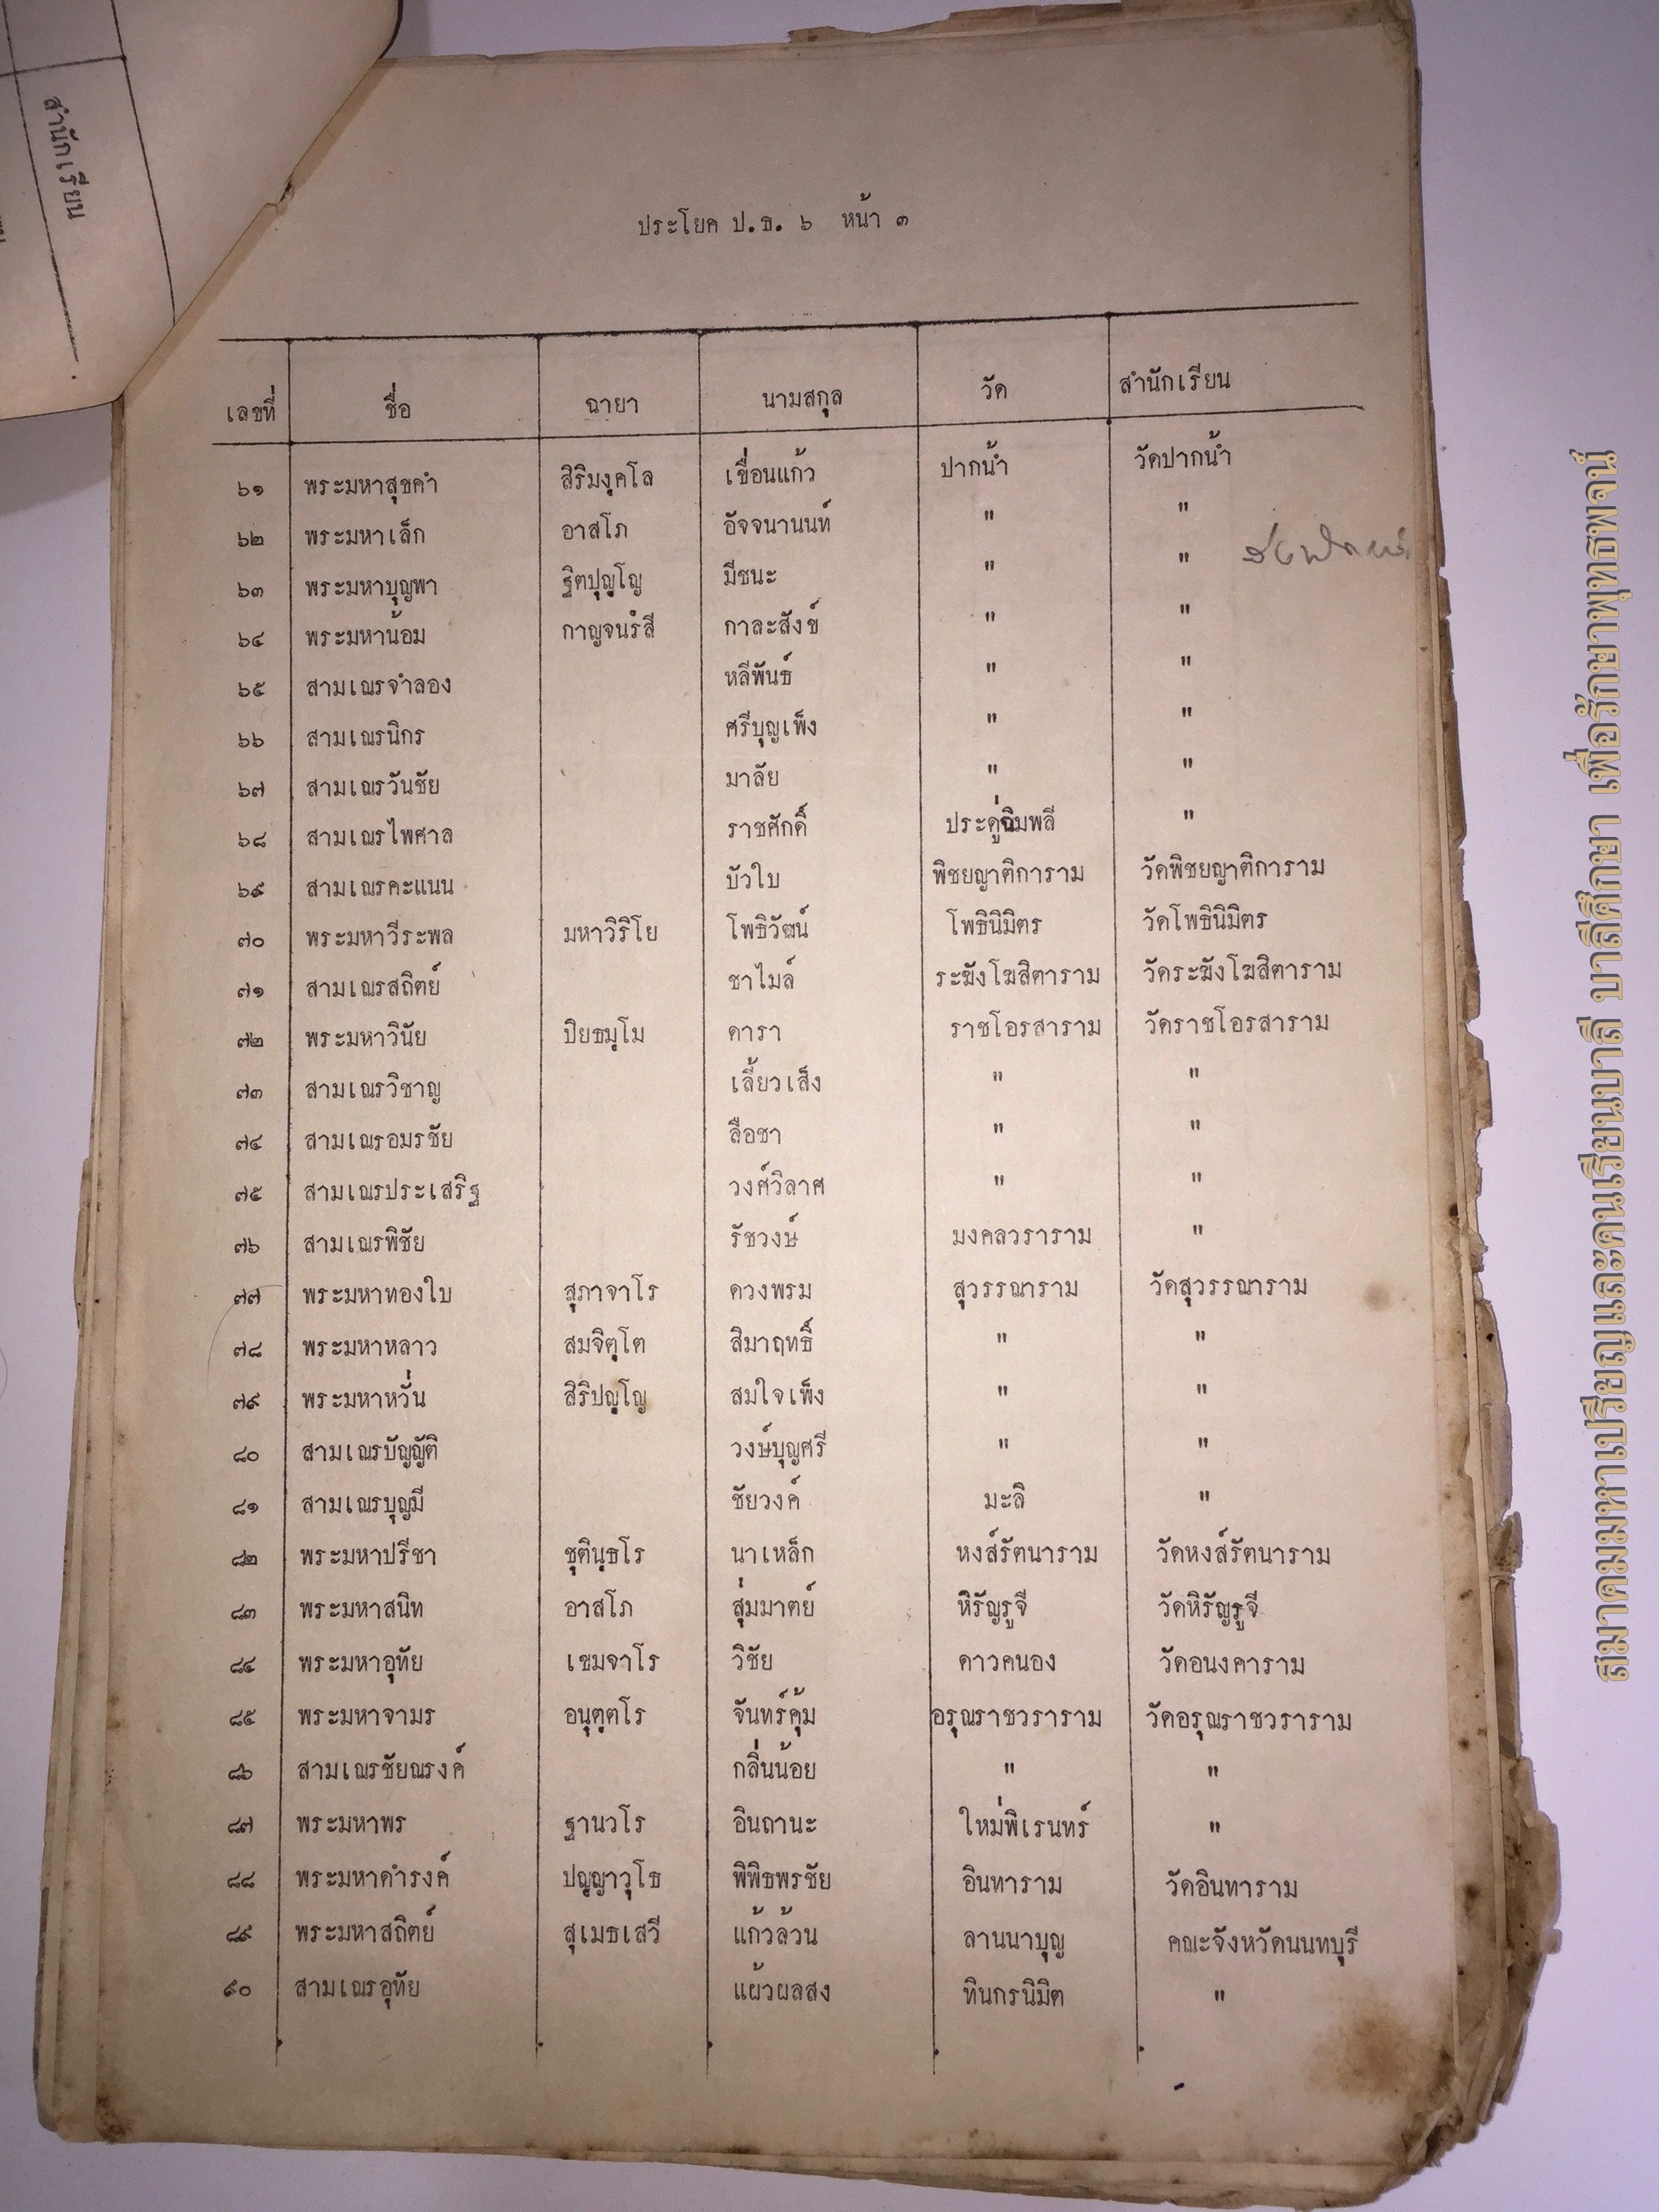 สำนักเรียน
ประโยค ป.ธ. ๖ หน้า ๓
เลขที่ ชื่อ ฉายา นามสกุล วัด สำนักเรียน
๖๑ พระมหาสุขคำ สิริมงฺคโล เขื่อนแก้ว ปากน้ำ วัดปากน้ำ
๖๒ พระมหาเล็ก อาสโภ อัจจนานนท์ " "
๖๓ พระมหาบุญพา ฐิตปุญฺโญ มีชนะ " "
๖๔ พระมหาน้อม กาญจนรํสี กาละสังข์ " "
๖๕ สามเณรจำลอง หลีพันธ์ " "
๖๖ สามเณรนิกร ศรีบุญเพ็ง " "
๖๗ สามเณรวันชัย มาลัย " "
๖๘ สามเณรไพศาล ราชศักดิ์ ประดู่ฉิมพลี "
๖๙ สามเณรคะแนน บัวใบ พิชยญาติการาม วัดพิชยญาติการาม
๗๐ พระมหาวีระพล มหาวิริโย โพธิวัฒน์ โพธินิมิตร วัดโพธินิมิตร
๗๑ สามเณรสถิตย์ ชาไมล์ ระฆังโฆสิตาราม วัดระฆังโฆสิตาราม
๗๒ พระมหาวินัย ปิยธมฺโม ดารา ราชโอรสาราม วัดราชโอรสาราม
๗๓ สามเณรวิชาญ เลี้ยวเส็ง " "
๗๔ สามเณรอมรชัย ลือชา " "
๗๕ สามเณรประเสริฐ วงศ์วิลาศ " "
๗๖ สามเณรพิชัย รัชวงษ์ มงคลวราราม "
๗๗ พระมหาทองใบ สุภาจาโร ดวงพรม สุวรรณาราม วัดสุวรรณาราม
๗๘ พระมหาหลาว สมจิตฺโต สิมาฤทธิ์ " "
๗๙ พระมหาหวั่น สิริปญฺโญ สมใจเพ็ง " "
๘๐ สามเณรบัญญัติ วงษ์บุญศรี " "
๘๑ สามเณรบุญมี ชัยวงค์ มะลิ "
๘๒ พระมหาปรีชา ชุตินฺธโร นาเหล็ก หงส์รัตนาราม วัดหงส์รัตนาราม
๘๓ พระมหาสนิท อาสโภ สุ่มมาตย์ หิรัญรูจี วัดหิรัญรูจี
๘๔ พระมหาอุทัย เขมจาโร วิชัย ดาวคนอง วัดอนงคาราม
๘๕ พระมหาจามร อนุตฺตโร จันทร์คุ้ม อรุณราชวราราม วัดอรุณราชวราราม
๘๖ สามเณรชัยณรงค์ กลิ่นน้อย " "
๘๗ พระมหาพร ฐานวโร อินถานะ ใหม่พิเรนทร์ "
๘๘ พระมหาดำรงค์ ปญฺญาวุโธ พิพิธพรชัย อินทาราม วัดอินทาราม
๘๙ พระมหาสถิตย์ สุเมธเสวี แก้วล้วน ลานนาบุญ คณะจังหวัดนนทบุรี
๙๐ สามเณรอุทัย แผ้วผลสง ทินกรนิมิต "
สมาคมมหาเปรียญและคนเรียนบาลี บาลีศึกษา เพื่อรักษาพุทธพจน์